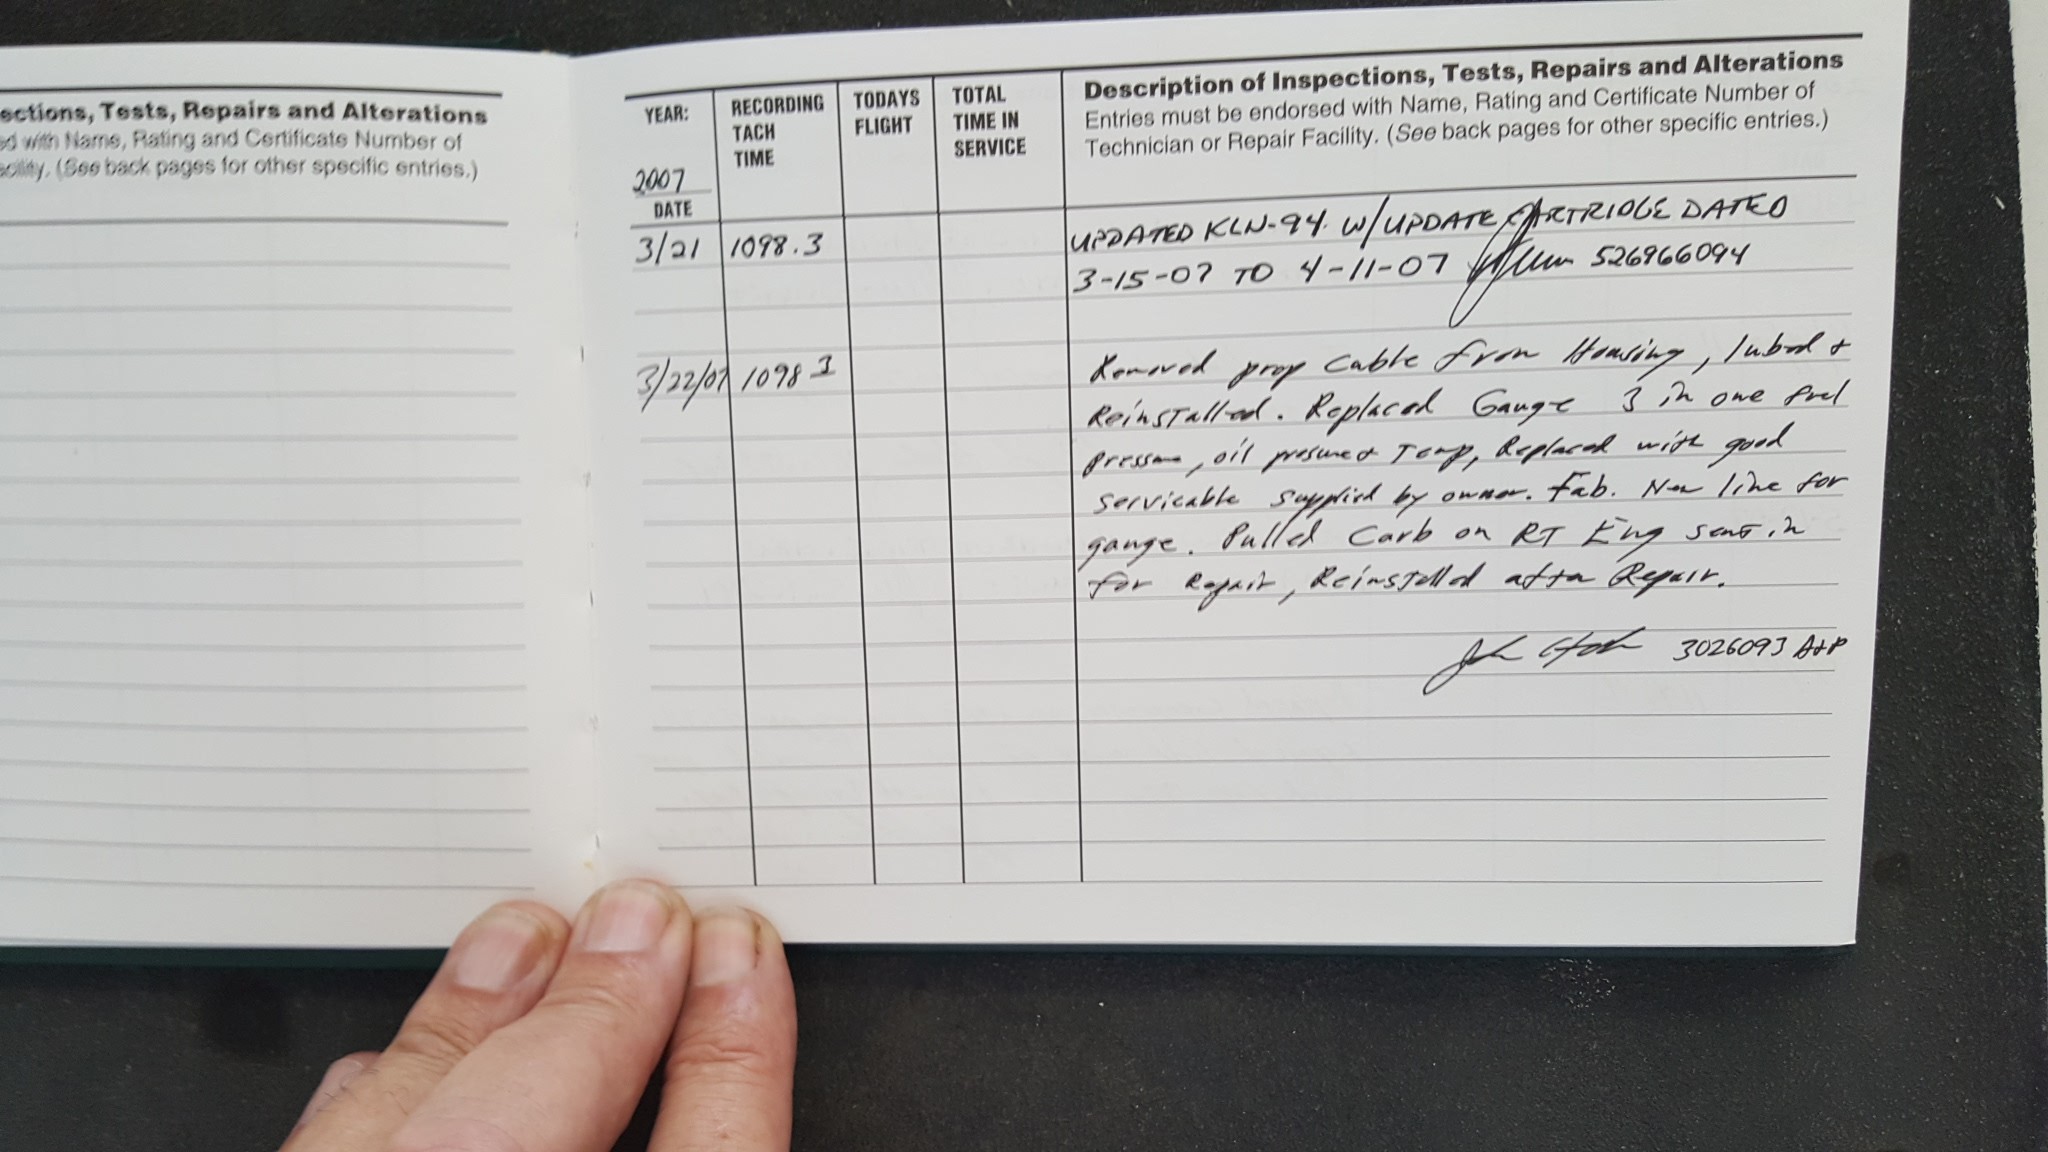 ections, Tests, Repairs and Alterations
ed with Name, Rating and Certificate Number of
acility. (See back pages for other specific entries.)
YEAR:
2007
DATE
RECORDING
TACH
TIME
TODAYS
FLIGHT
TOTAL
TIME IN
SERVICE
Description of Inspections, Tests, Repairs and Alterations
Entries must be endorsed with Name, Rating and Certificate Number of
Technician or Repair Facility. (See back pages for other specific entries.)
3/21 1098.3 UPDATED KLN-94 W/UPDATE CARTRIDGE DATED
3-15-07 TO 4-11-07 526966094
3/22/07 1098 3 Removed prop cable from Housing, lubed +
Reinstalled. Replaced Gauge 3 in one fuel
pressure, oil pressure + Temp, Replaced with good
servicable supplied by owner. Fab. New line for
gauge. Pulled Carb on RT Eng sent in
for Repair, Reinstalled after Repair.
John 3026093 A+P